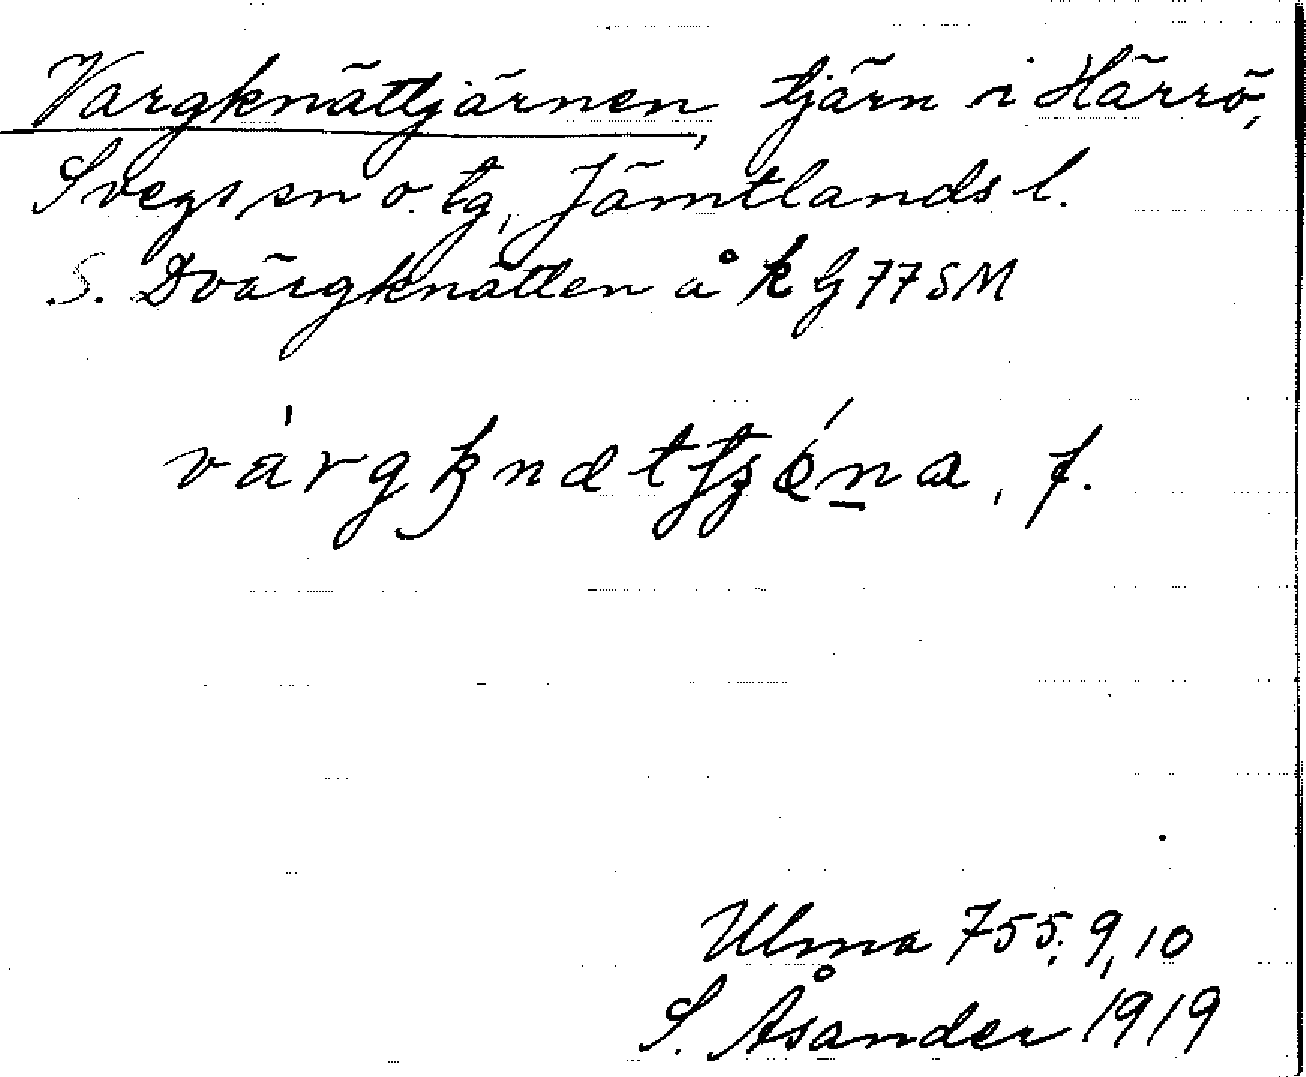 Vargknättjärnen, tjärn i Härrö,
Svegs sn o. tg, Jämtlands l.
S. Dvärgknätten å k G 77 SM
várgknætʃʒǿna, f.
Ulma 755:9,10
S. Åsander 1919